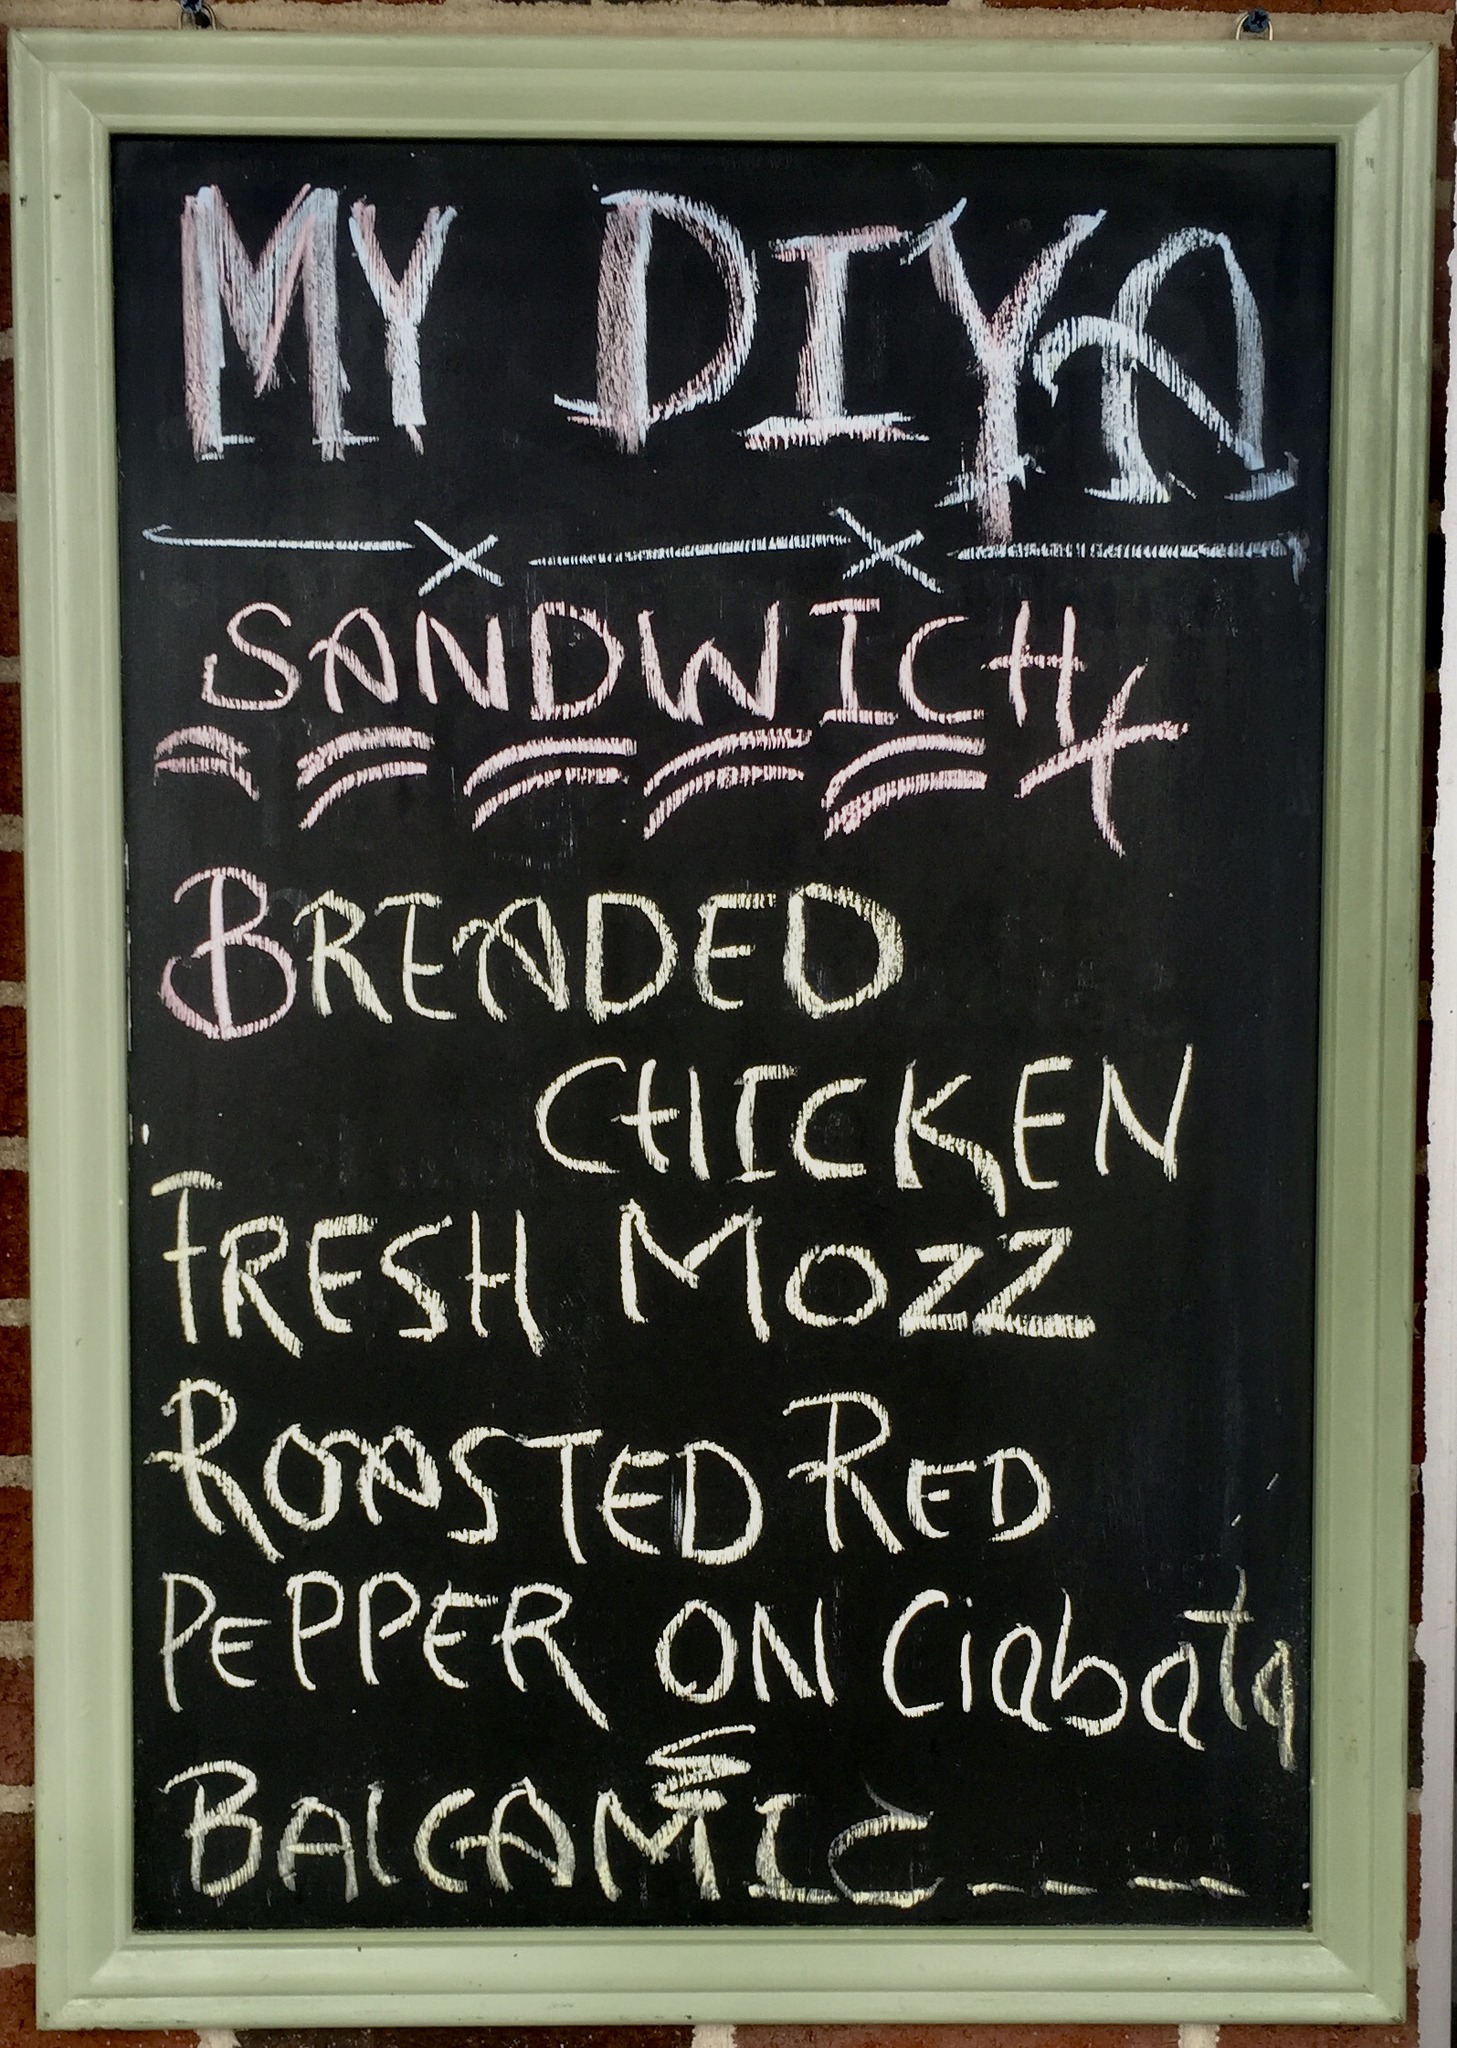 MY DIYA
SANDWICH
BREADED
CHICKEN
FRESH MOZZ
ROASTED RED
PEPPER ON Ciabata
BALGAMIC